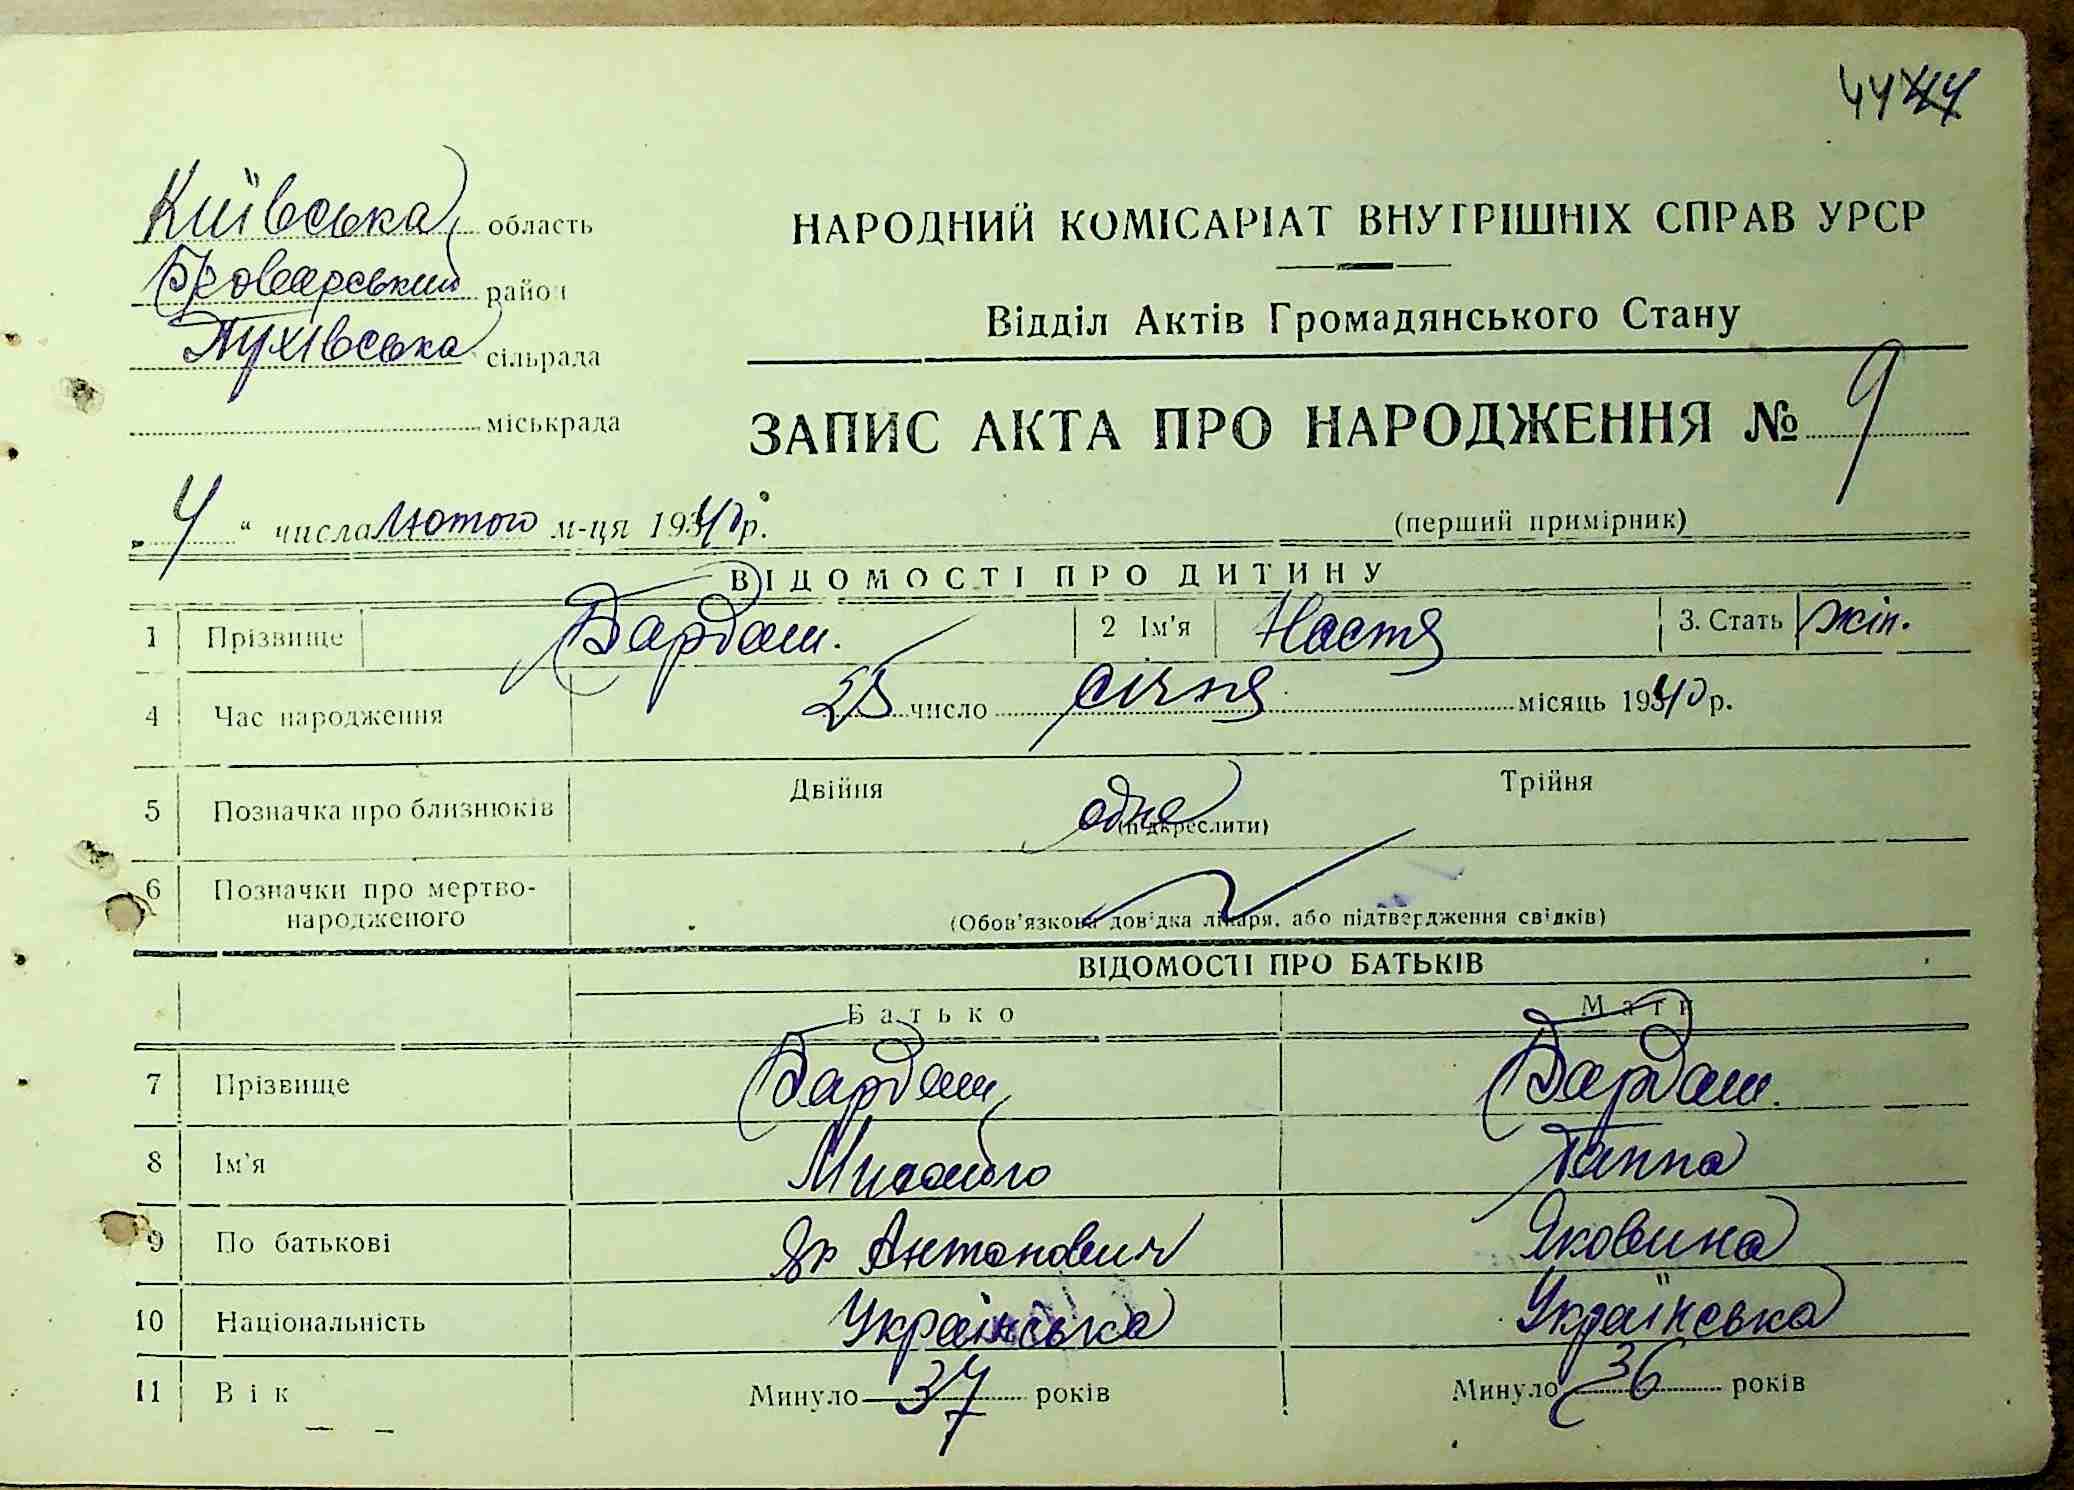 44 44
Київська область
Броварський район
Пухівська сільрада
міськрада
НАРОДНИЙ КОМІСАРІАТ ВНУТРІШНІХ СПРАВ УРСР
Відділ Актів Громадянського Стану
ЗАПИС АКТА ПРО НАРОДЖЕННЯ № 9
„4“ числа лютого м-ця 1940 р.
(перший примірник)
ВІДОМОСТІ ПРО ДИТИНУ
1 Прізвище Бардаш. 2 Ім'я Настя 3. Стать жін.
4 Час народження 25 число січня місяць 1940 р.
5 Позначка про близнюків Двійня одна Трійня
(підкреслити)
6 Позначки про мертво-
народженого
(Обов'язкова довідка лікаря, або підтвердження свідків)
ВІДОМОСТІ ПРО БАТЬКІВ
Батько Мати
7 Прізвище Бардаш Бардаш.
8 Ім'я Ганна
9 По батькові Антонович Яковина
10 Національність Українська Українська
11 Вік Минуло 37 років Минуло 36 років